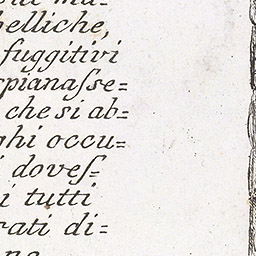 belliche,
fuggitivi
spianaſse=
che si ab=
ghi occu=
doveſ=
i tutti
rati di=